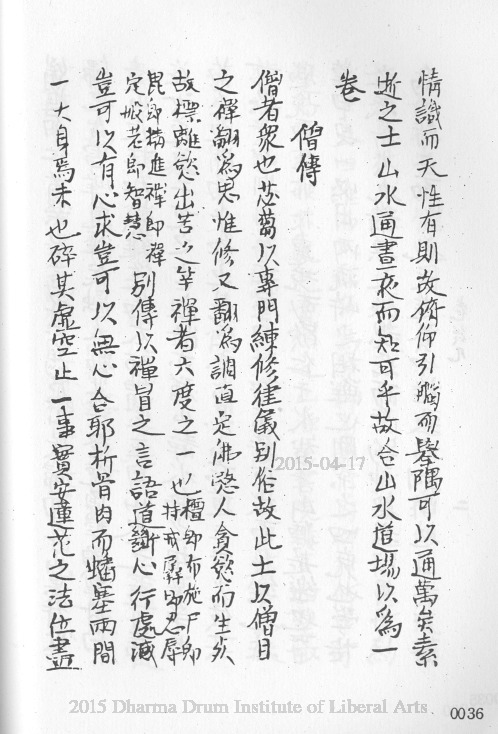 情識而天性有則故俯仰引觸而舉隅可以通萬矣素
逝之士山水通晝夜而知可乎故合山水道場以為一
卷
僧傳
僧者眾也苾蒭以專門練修律儀別俗故此土以僧目
之禪翻為思惟修又翻為調直定佛愍人貪慾而生矣
故標離慾出苦之竿禪者六度之一也檀即布施尸即持戒羼即忍辱
毘即精進禪即禪定般若即智慧別傳以禪冒之言語道斷心行處滅
豈可以有心求豈可以無心合耶析骨肉而蟠塞兩間
一大身焉未也碎其虛空止一事實安蓮花之法位盡
2015-04-17
2015 Dharma Drum Institute of Liberal Arts
0036